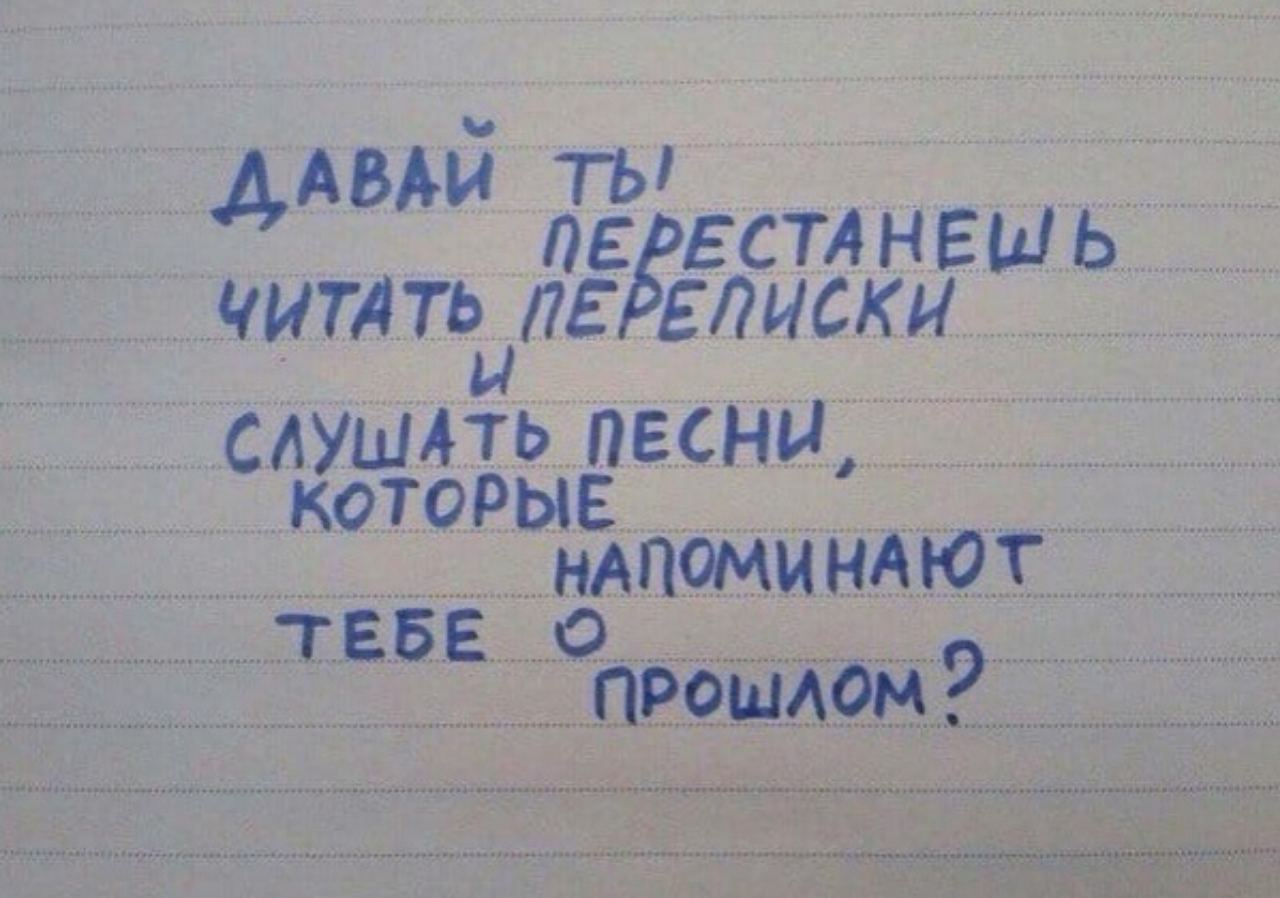 ДАВАЙ ТЫ
ПЕРЕСТАНЕШЬ
ЧИТАТЬ ПЕРЕПИСКИ
И
СЛУШАТЬ ПЕСНИ,
КОТОРЫЕ
НАПОМИНАЮТ
ТЕБЕ О
ПРОШЛОМ?